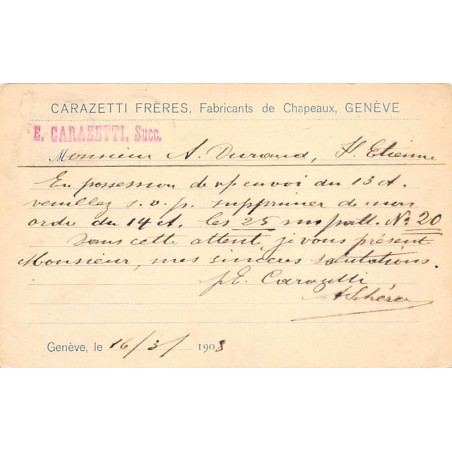 CARAZETTI FRÈRES, Fabricants de Chapeaux, GENÈVE
E. CARAZETTI, Succ.
Monsieur A. Durand, St. Etienne
En possession de v/ envoi du 13 ct.
veuillez s.v.p. supprimer de mon
ordre du 14 ct. les 25 m patt. No 20
Dans cette attent, je vous présent
Monsieur, mes sincères salutations.
p E. Carazetti
Genève, le 16/3/ 1903